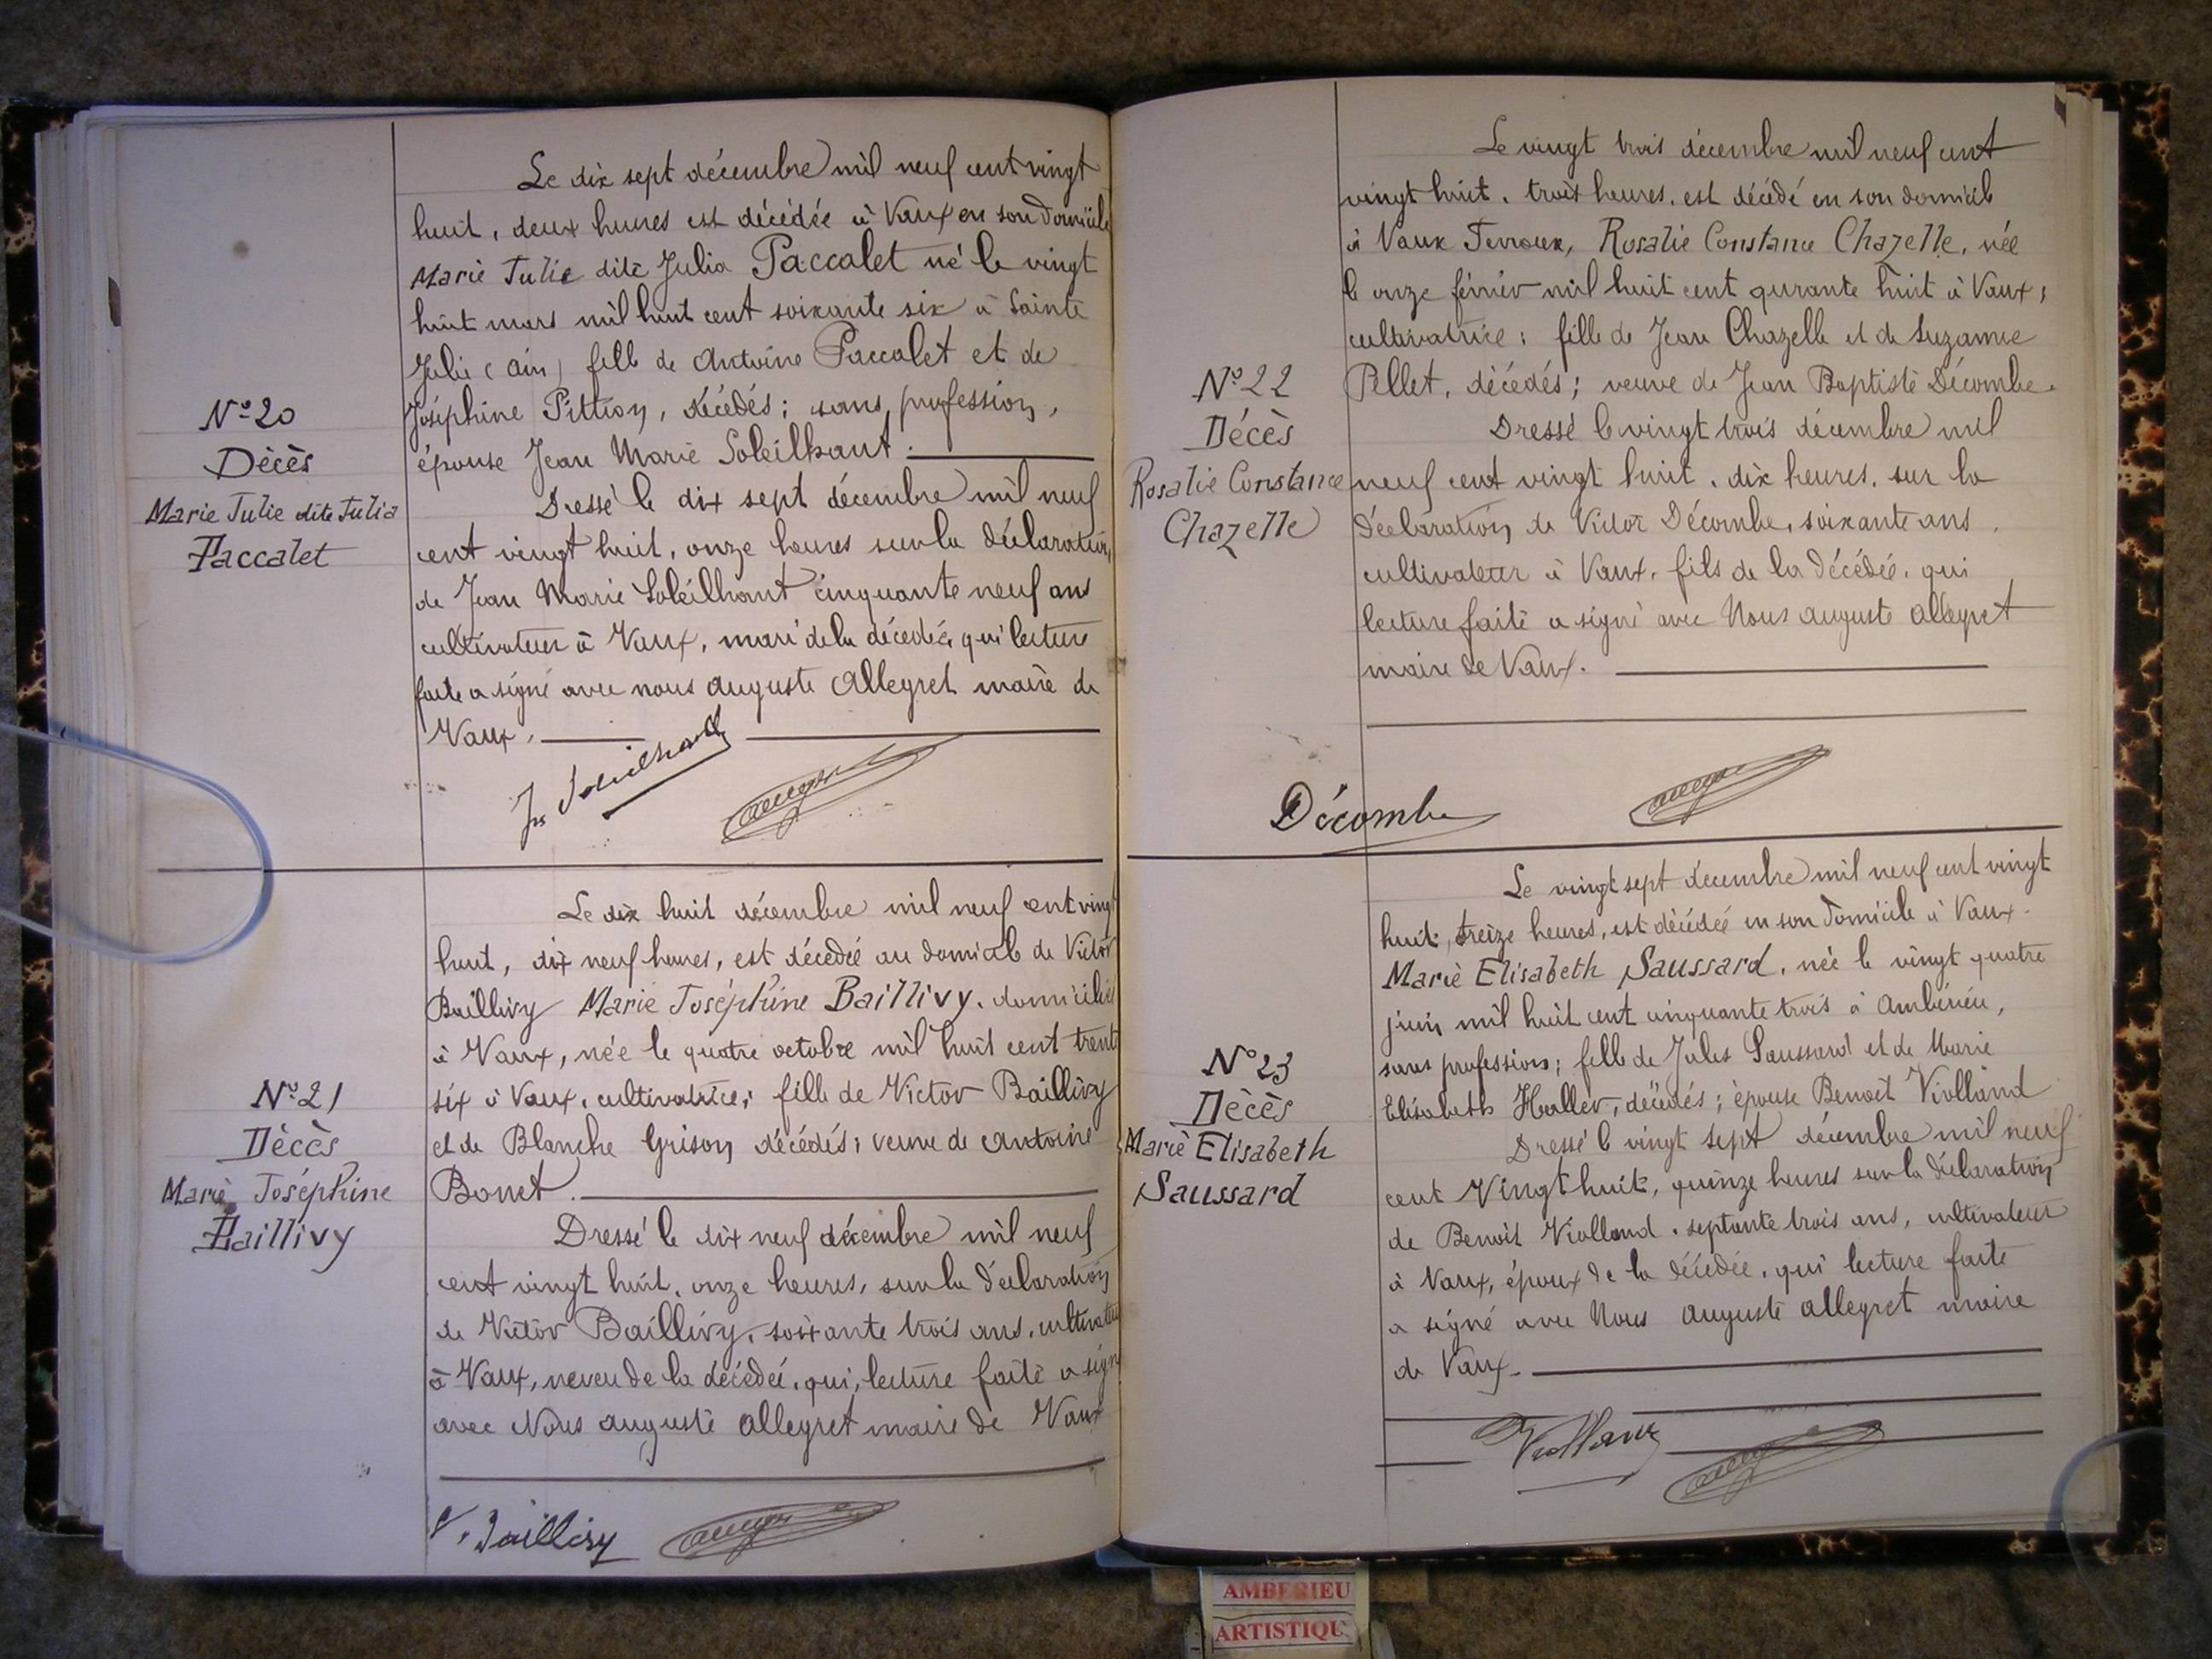 Le dix sept décembre mil neuf cent vingt
huit, deux heures est décédée à Vaux en son domicile
Marie Julie dite Julia Paccalet né le vingt
huit mars mil huit cent soixante six à Sainte
Julie (Ain) fille de Antoine Paccalet et de
Joséphine Pittion, décédés; sans profession,
épouse Jean Marie Soleilhant.
Dressé le dix sept décembre mil neuf
cent vingt huit, onze heures sur la déclaration,
de Jean Marie Soleilhant cinquante neuf ans
cultivateur à Vaux, mari de la décédée, qui lecture
faite a signé avec nous Auguste Allegret maire de
Vaux.
N° 20
Décès
Marie Julie dite Julia
Paccalet
Le dix huit décembre mil neuf cent vingt
huit, dix neuf heures, est décédée au domicile de Victor
Baillivy Marie Joséphine Baillivy, domiciliée
à Vaux, née le quatre octobre mil huit cent trente
six à Vaux, cultivatrice; fille de Victor Baillivy
et de Blanche Grison décédés; veuve de Antoine
Bonet.
Dressé le dix neuf décembre mil neuf
cent vingt huit, onze heures, sur la déclaration
de Victor Baillivy, soixante trois ans, cultivateur
à Vaux, neveu de la décédée, qui, lecture faite a signé
avec Nous Auguste Allegret maire de Vaux
N° 21
Décès
Marie Joséphine
Baillivy
V. Baillivy
Le vingt trois décembre mil neuf cent
vingt huit, trois heures, est décédé en son domicile
à Vaux Fevroux, Rosalie Constance Chazelle, née
le onze février mil huit cent qurante huit à Vaux;
cultivatrice; fille de Jean Chazelle et de Suzanne
Pellet, décédés; veuve de Jean Baptiste Décombe.
Dressé le vingt trois décembre mil
neuf cent vingt huit, dix heures, sur la
déclaration de Victor Décombe, soixante ans,
cultivateur à Vaux, fils de la décédée, qui
lecture faite a signé avec Nous Auguste Allegret
maire de Vaux.
N° 22
Décès
Rosalie Constance
Chazelle
Décombe
Le vingt sept décembre mil neuf cent vingt
huit, treize heures, est décédée en son domicile à Vaux
Marie Elisabeth Saussard, née le vingt quatre
juin mil huit cent cinquante trois à Ambérieu,
sans profession; fille de Jules Saussard et de Marie
Elisabeth Haller, décédés; épouse Benoit Violland
Dressé le vingt sept décembre mil neuf
cent Vingt huit, quinze heures sur la déclaration
de Benoit Violland, septante trois ans, cultivateur
à Vaux, époux de la décédée, qui lecture faite
a signé avec Nous Auguste Allegret maire
de Vaux.
N° 23
Décès
Marie Elisabeth
Saussard
Violland
AMBERIEU
ARTISTIQU